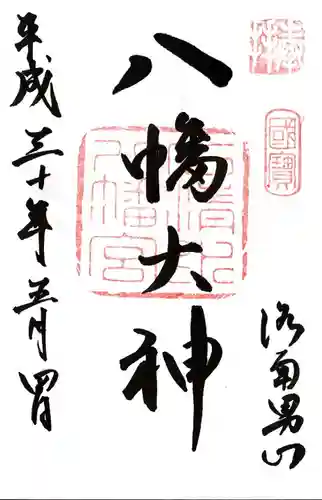 奉拝
國寶
洛南男山
八幡大神
石清水八幡宮
平成三十年五月四日